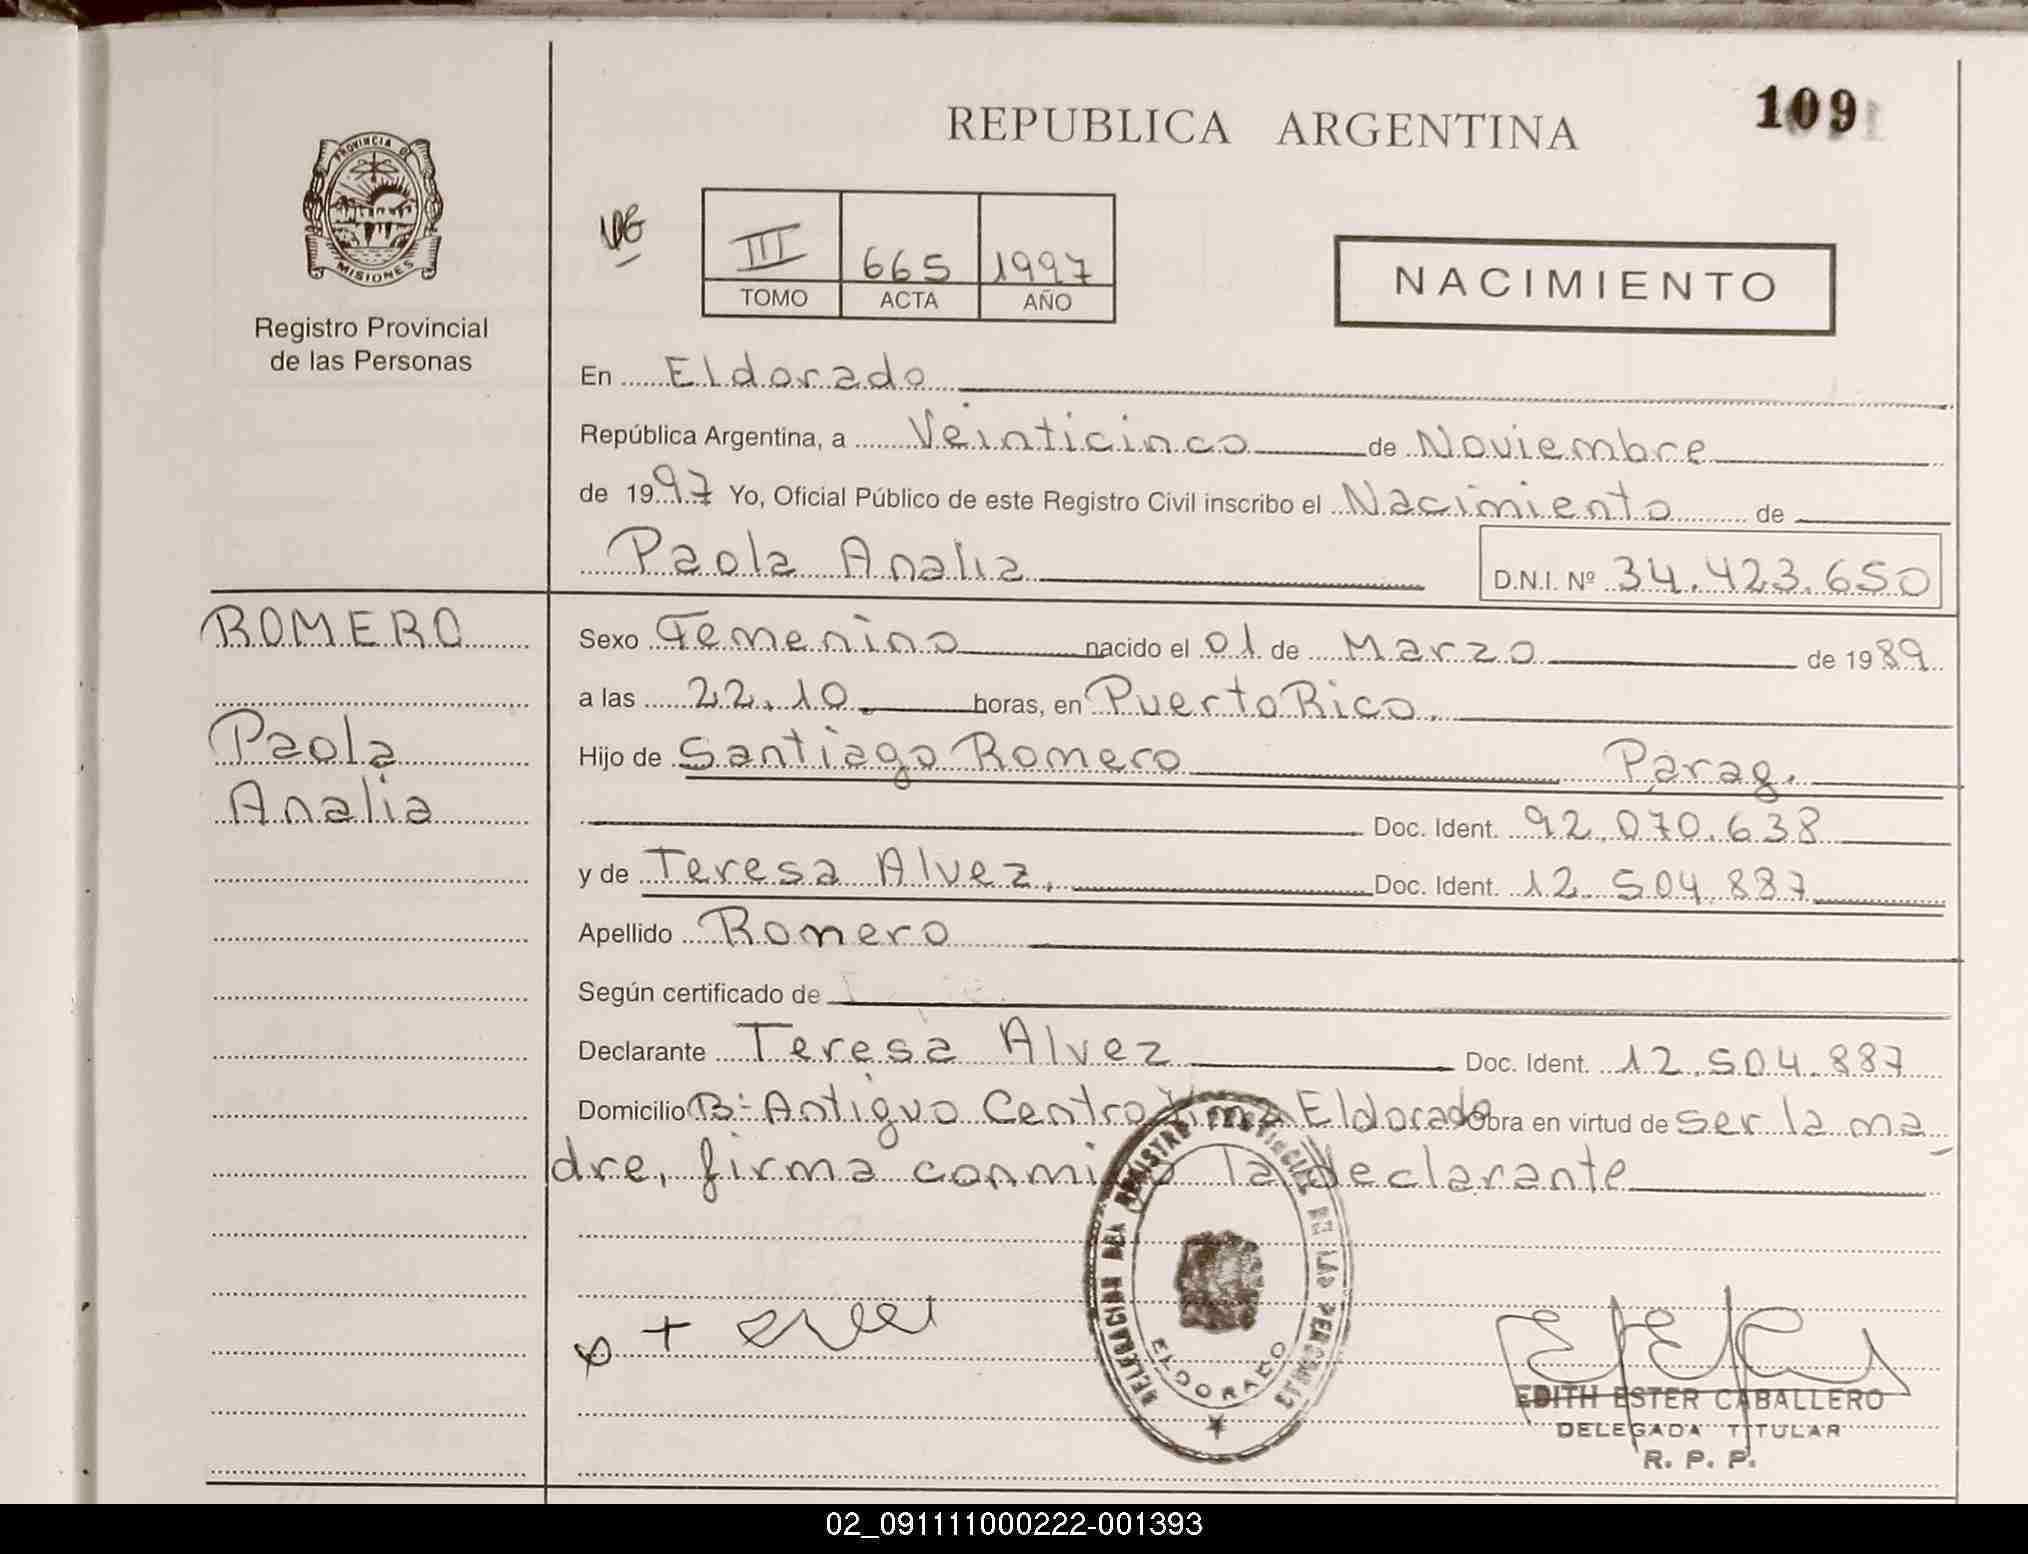 REPUBLICA ARGENTINA
109
PROVINCIA DE
MISIONES
Registro Provincial
de las Personas
III 665 1997
TOMO ACTA AÑO
NACIMIENTO
En Eldorado
República Argentina, a Veinticinco de Noviembre
de 1997 Yo, Oficial Público de este Registro Civil inscribo el Nacimiento de
Paola Analia D.N.I. Nº 34.423.650
ROMERO
Paola
Analia
Sexo Femenino nacido el 01 de Marzo de 1989
a las 22.10. horas, en Puerto Rico.
Hijo de Santiago Romero Parag.
Doc. Ident. 92.070.638
y de Teresa Alvez. Doc. Ident. 12.504.887
Apellido Romero
Según certificado de
Declarante Teresa Alvez Doc. Ident. 12.504.887
Domicilio Bº Antiguo Centro Eldorado Obra en virtud de ser la ma
dre, firma conmigo la declarante
ELDORADO
EDITH ESTER CABALLERO
DELEGADA TITULAR
R. P. P.
02_091111000222-001393